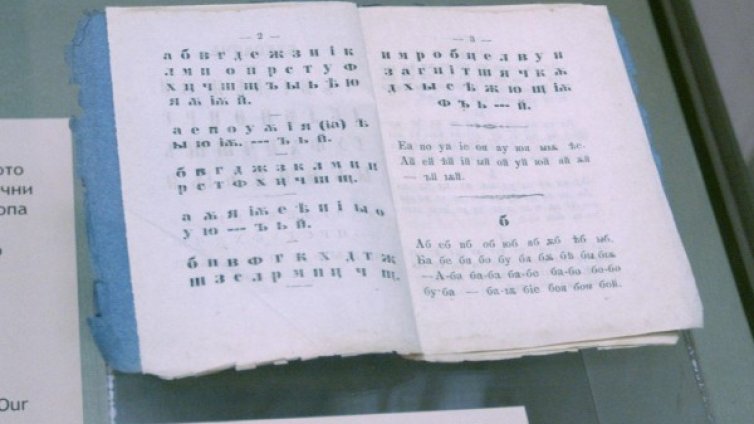 — 2 —
а б в г д е ж з и і к
л м н о п р с т у ф
х ц ч ш щ ъ ы ь ѣ ю
я ѫ ѭ й.
а е и о у ѫ і я (іа) ѣ
ы ю ѭ. --- ъ. ь й.
б в г д ж з к л м н п
р с т ф х ц ч ш щ.
а ѫ я ѭ е ѣ и і ы о
у ю --- ъ. ь й.
б п в ф г к х д т ж
ш з с л р м н ц ч щ.
— 3 —
и м р о б ц е л в у п
з а г н і т ш я ч к ѫ
д х ы с ѣ ж ю щ ѭ
ф ъ ь --- й.
Ай ей ѣй ій ый ой уй юй яй ѫй
— ъй ѭй.
б
Аб еб иб об юб яб ѫб ѣб ѭб.
Ба бе би бо бу бя бѫ бѣ бы бѭ
—А-ба ба-ба ба-бе ба-бо бо-бо
бу-ба — ба-ѭ біе боя бои бой.
ото
чни
опа
Our